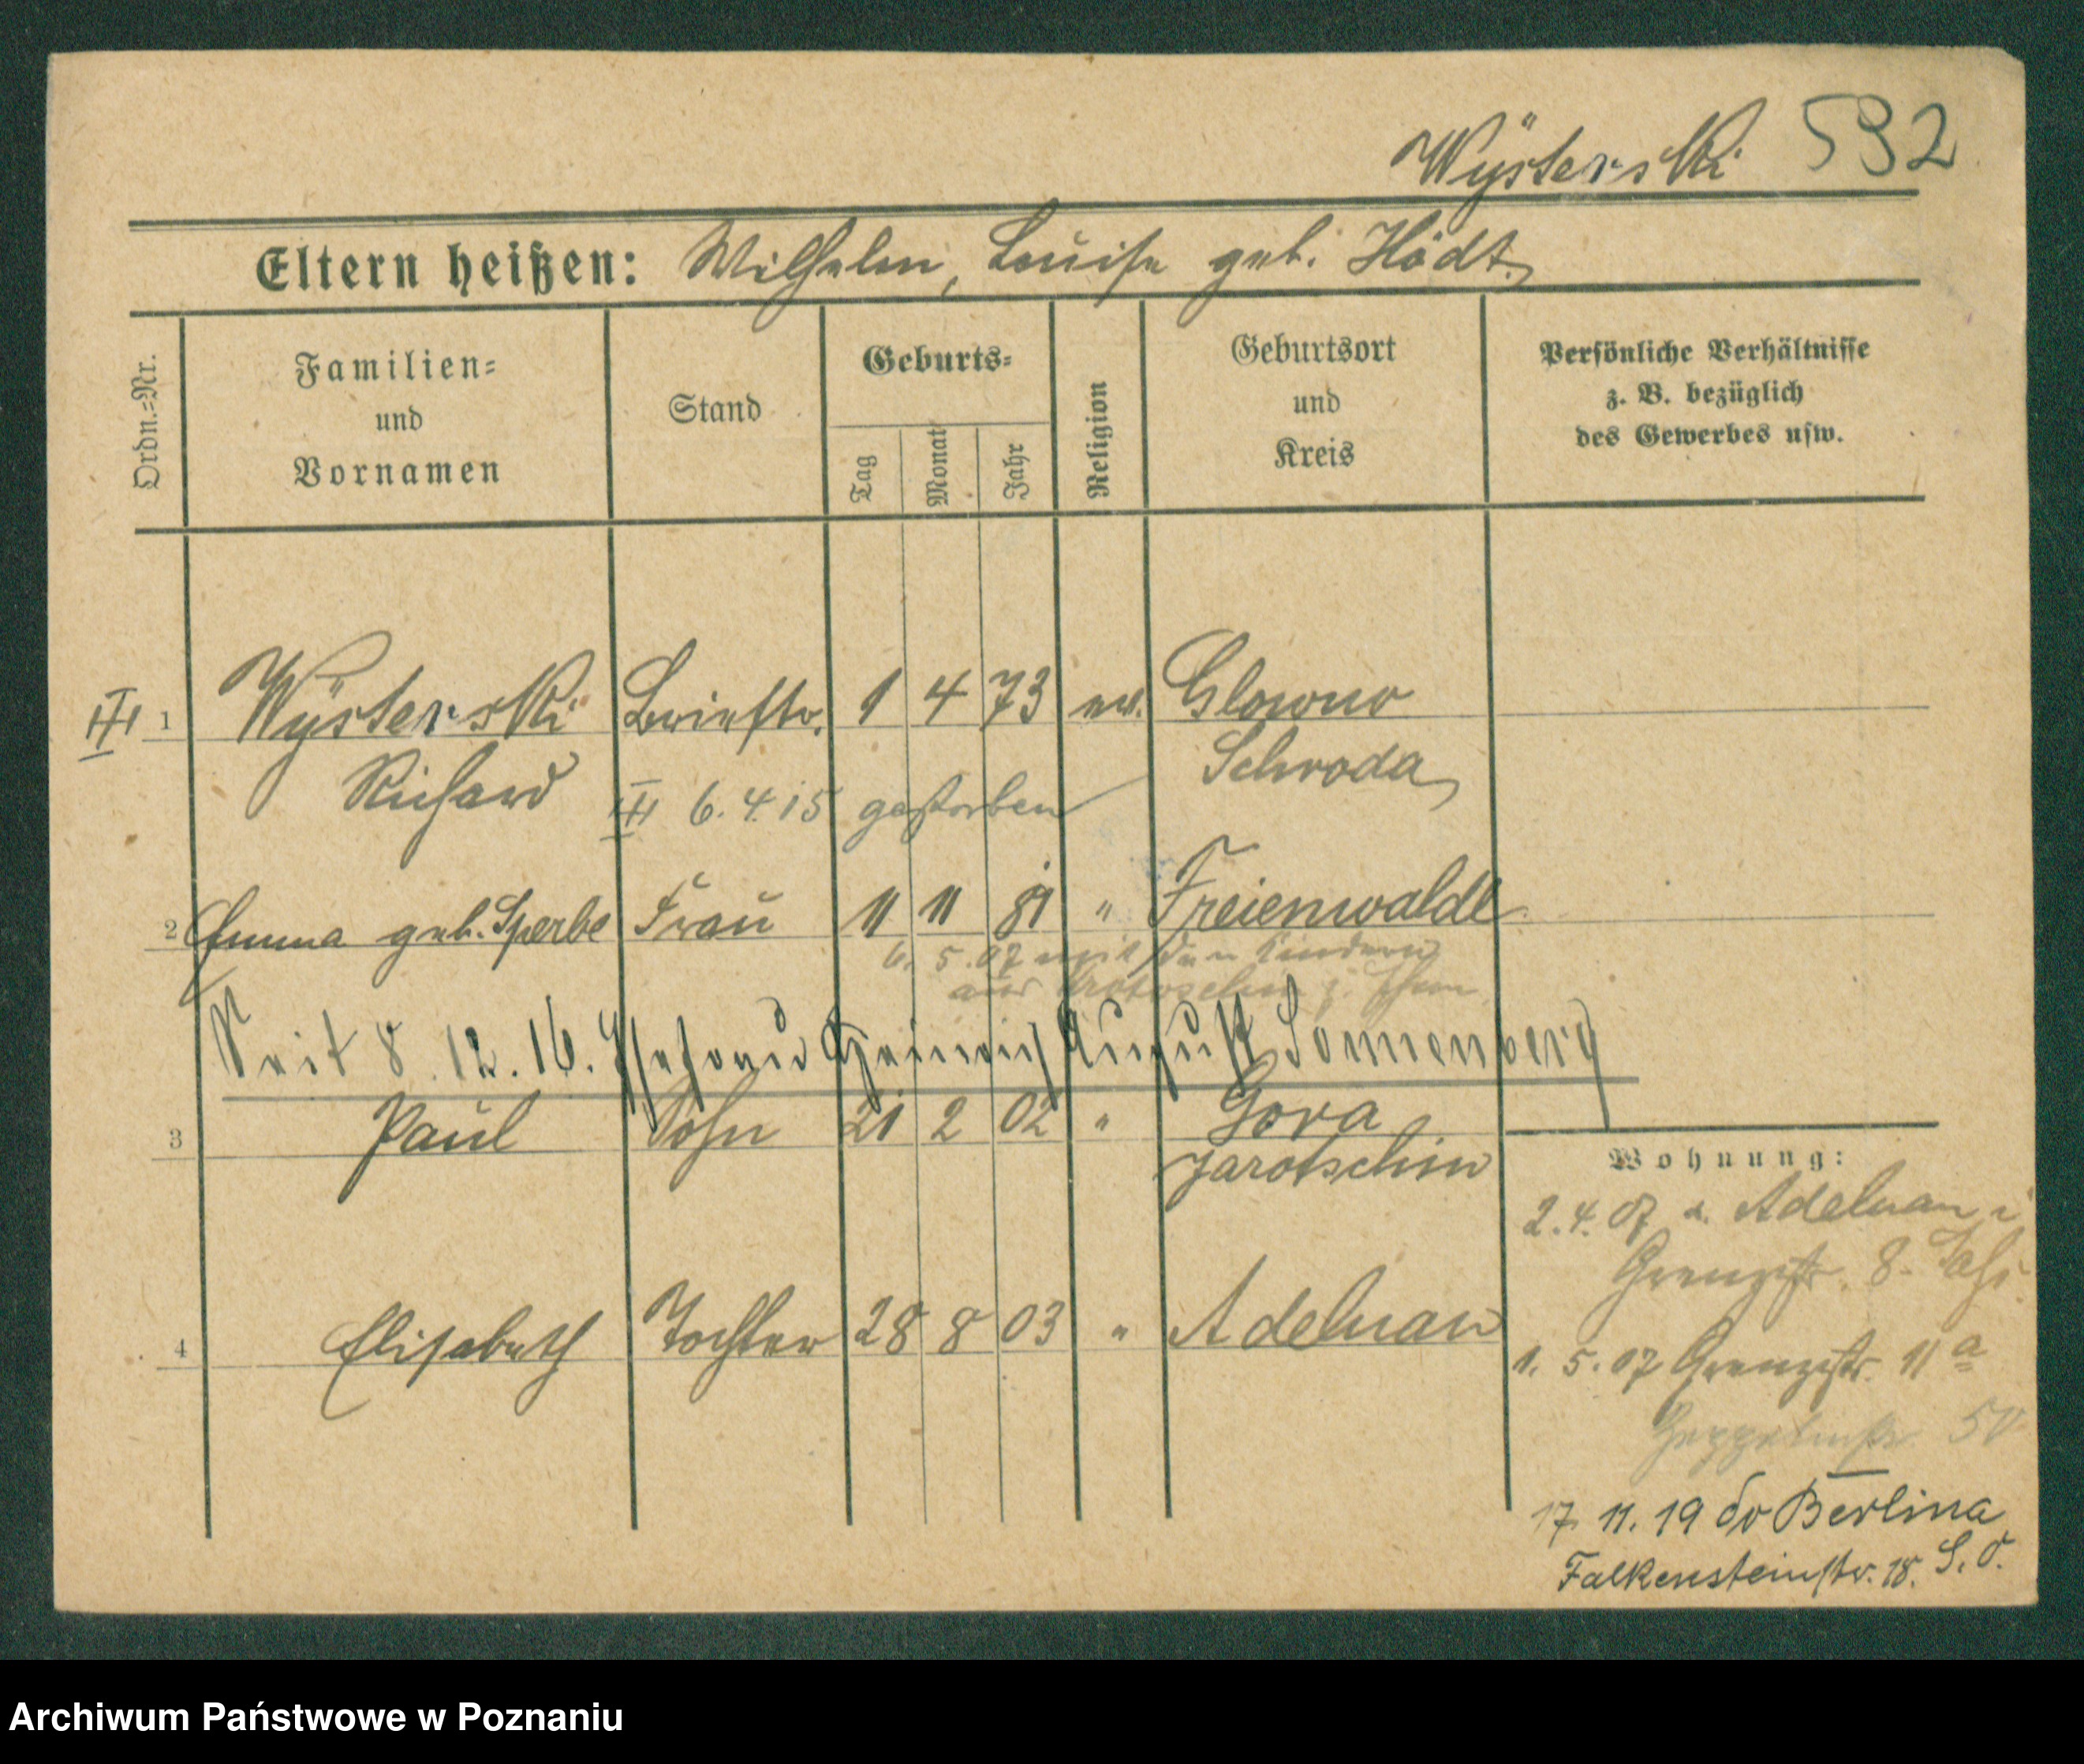 Wÿsterski 592
Eltern heißen: Wilhelm, Louise geb. Hödt.
Ordn.-Nr.
Familien-
und
Vornamen
Stand
Geburts-
Tag
Monat
Jahr
Religion
Geburtsort
und
Kreis
Persönliche Verhältnisse
z. B. bezüglich
des Gewerbes usw.
1 Wÿsterski Brieftr. 1 4 73 ev. Glowno
Richard Schroda
6. 4. 15 gestorben
2 Emma geb. Sperbe Frau 11 11 81 " Freienwalde
6. 5. 07 mit den Kindern
aus Krotoschin z. Ehem
Seit 8. 12. 16. Ehefrau Heinrich August Sonnenberg
3 Paul Sohn 21 2 02 " Gora
Jarotschin
Wohnung:
2. 4. 07 a. Adelnau i
Grenzstr. 8.
4 Elisabeth Tochter 28 8 03 " Adelnau
1. 5. 07 Grenzstr. 11 a
17. 11. 19 do Berlina
Falkensteinstr. 18. S. O.
Archiwum Państwowe w Poznaniu